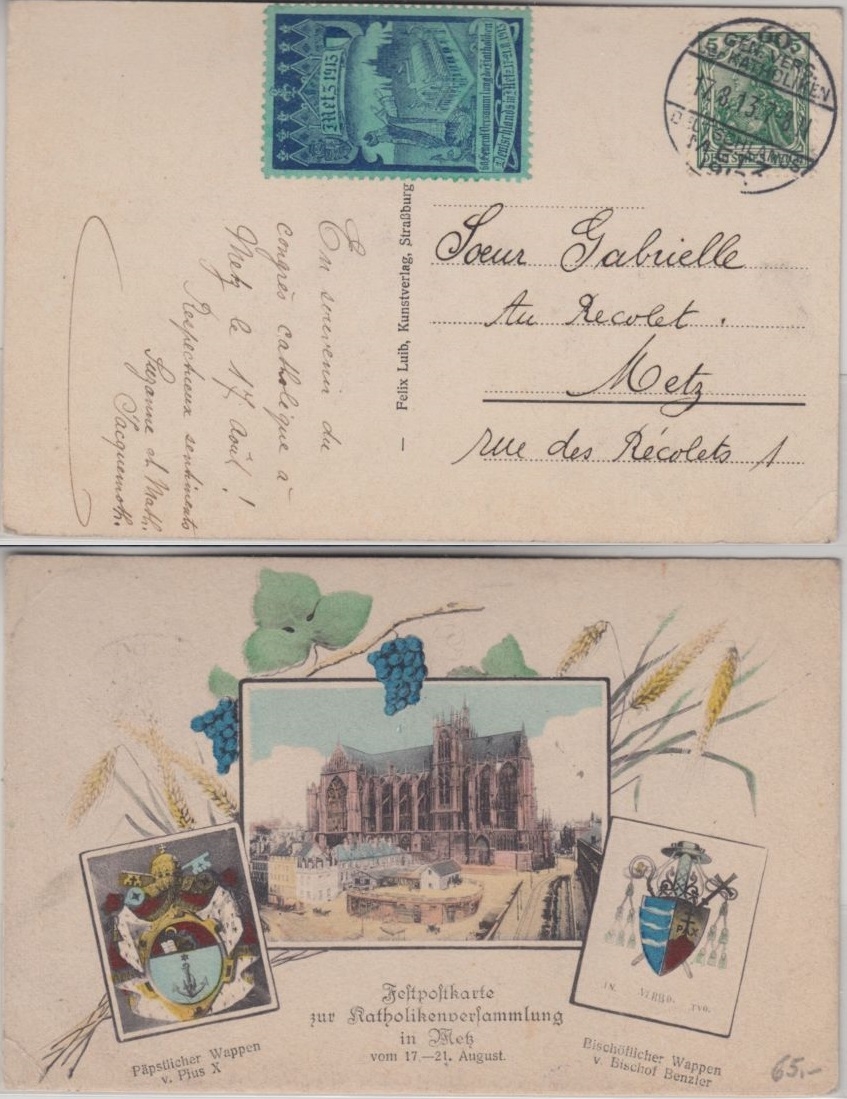 Metz 1913
60. General Versammlung der Katholiken
Deutschlands in Metz 17-21.8.1913
GEN. VERS.
KATHOLIKEN
17.8.13.
METZ
En souvenir du
congrès catholique à
Metz le 17 Août !
Respectueux sentiments
Suzanne et Math.
Jacquemoth.
— Felix Luib, Kunstverlag, Straßburg
Sœur Gabrielle
Au Recolet.
Metz
rue des Récolets 1
PX
IN VERBO. TUO.
Festpostkarte
zur Katholikenversammlung
in Metz
vom 17.—21. August.
Päpstlicher Wappen
v. Pius X
Bischöflicher Wappen
v. Bischof Benzler
65.-